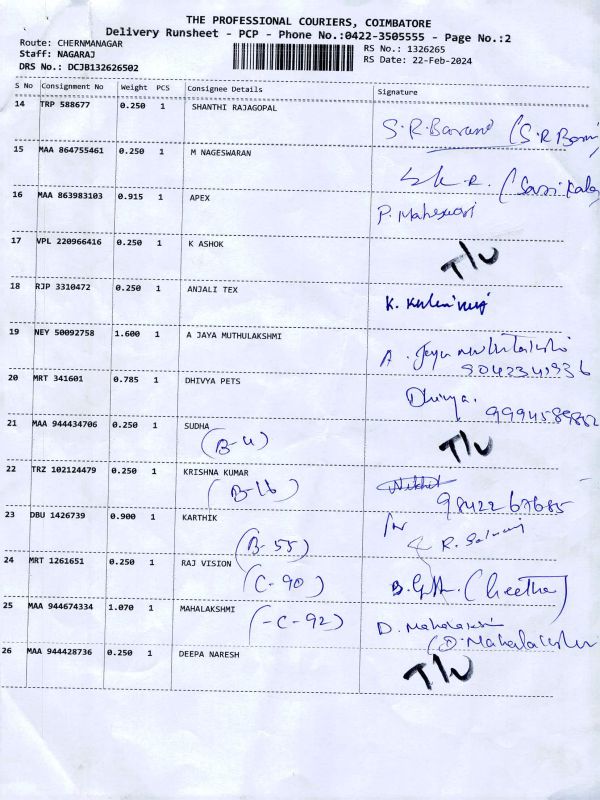 THE PROFESSIONAL COURIERS, COIMBATORE
Delivery Runsheet - PCP - Phone No.:0422-3505555 - Page No.:2
Route: CHERNMANAGAR
RS No.: 1326265
Staff: NAGARAJ
RS Date: 22-Feb-2024
DRS No.: DCJB132626502
S No Consignment No Weight PCS Consignee Details Signature
14 TRP 588677 0.250 1 SHANTHI RAJAGOPAL
S.R.
15 MAA 864755461 0.250 1 M NAGESWARAN
16 MAA 863983103 0.915 1 APEX
P. Maheswari
17 VPL 220966416 0.250 1 K ASHOK
T/U
18 RJP 3310472 0.250 1 ANJALI TEX
K.
19 NEY 50092758 1.600 1 A JAYA MUTHULAKSHMI
A. Jaya
20 MRT 341601 0.785 1 DHIVYA PETS
Dhivya.
21 MAA 944434706 0.250 1 SUDHA
(B-4)
T/U
22 TRZ 102124479 0.250 1 KRISHNA KUMAR
(B-16)
9842267685
23 DBU 1426739 0.900 1 KARTHIK
(B-55)
R.
24 MRT 1261651 0.250 1 RAJ VISION
(C-90)
25 MAA 944674334 1.070 1 MAHALAKSHMI
(-C-92)
D. Mahalakshmi
26 MAA 944428736 0.250 1 DEEPA NARESH
T/U